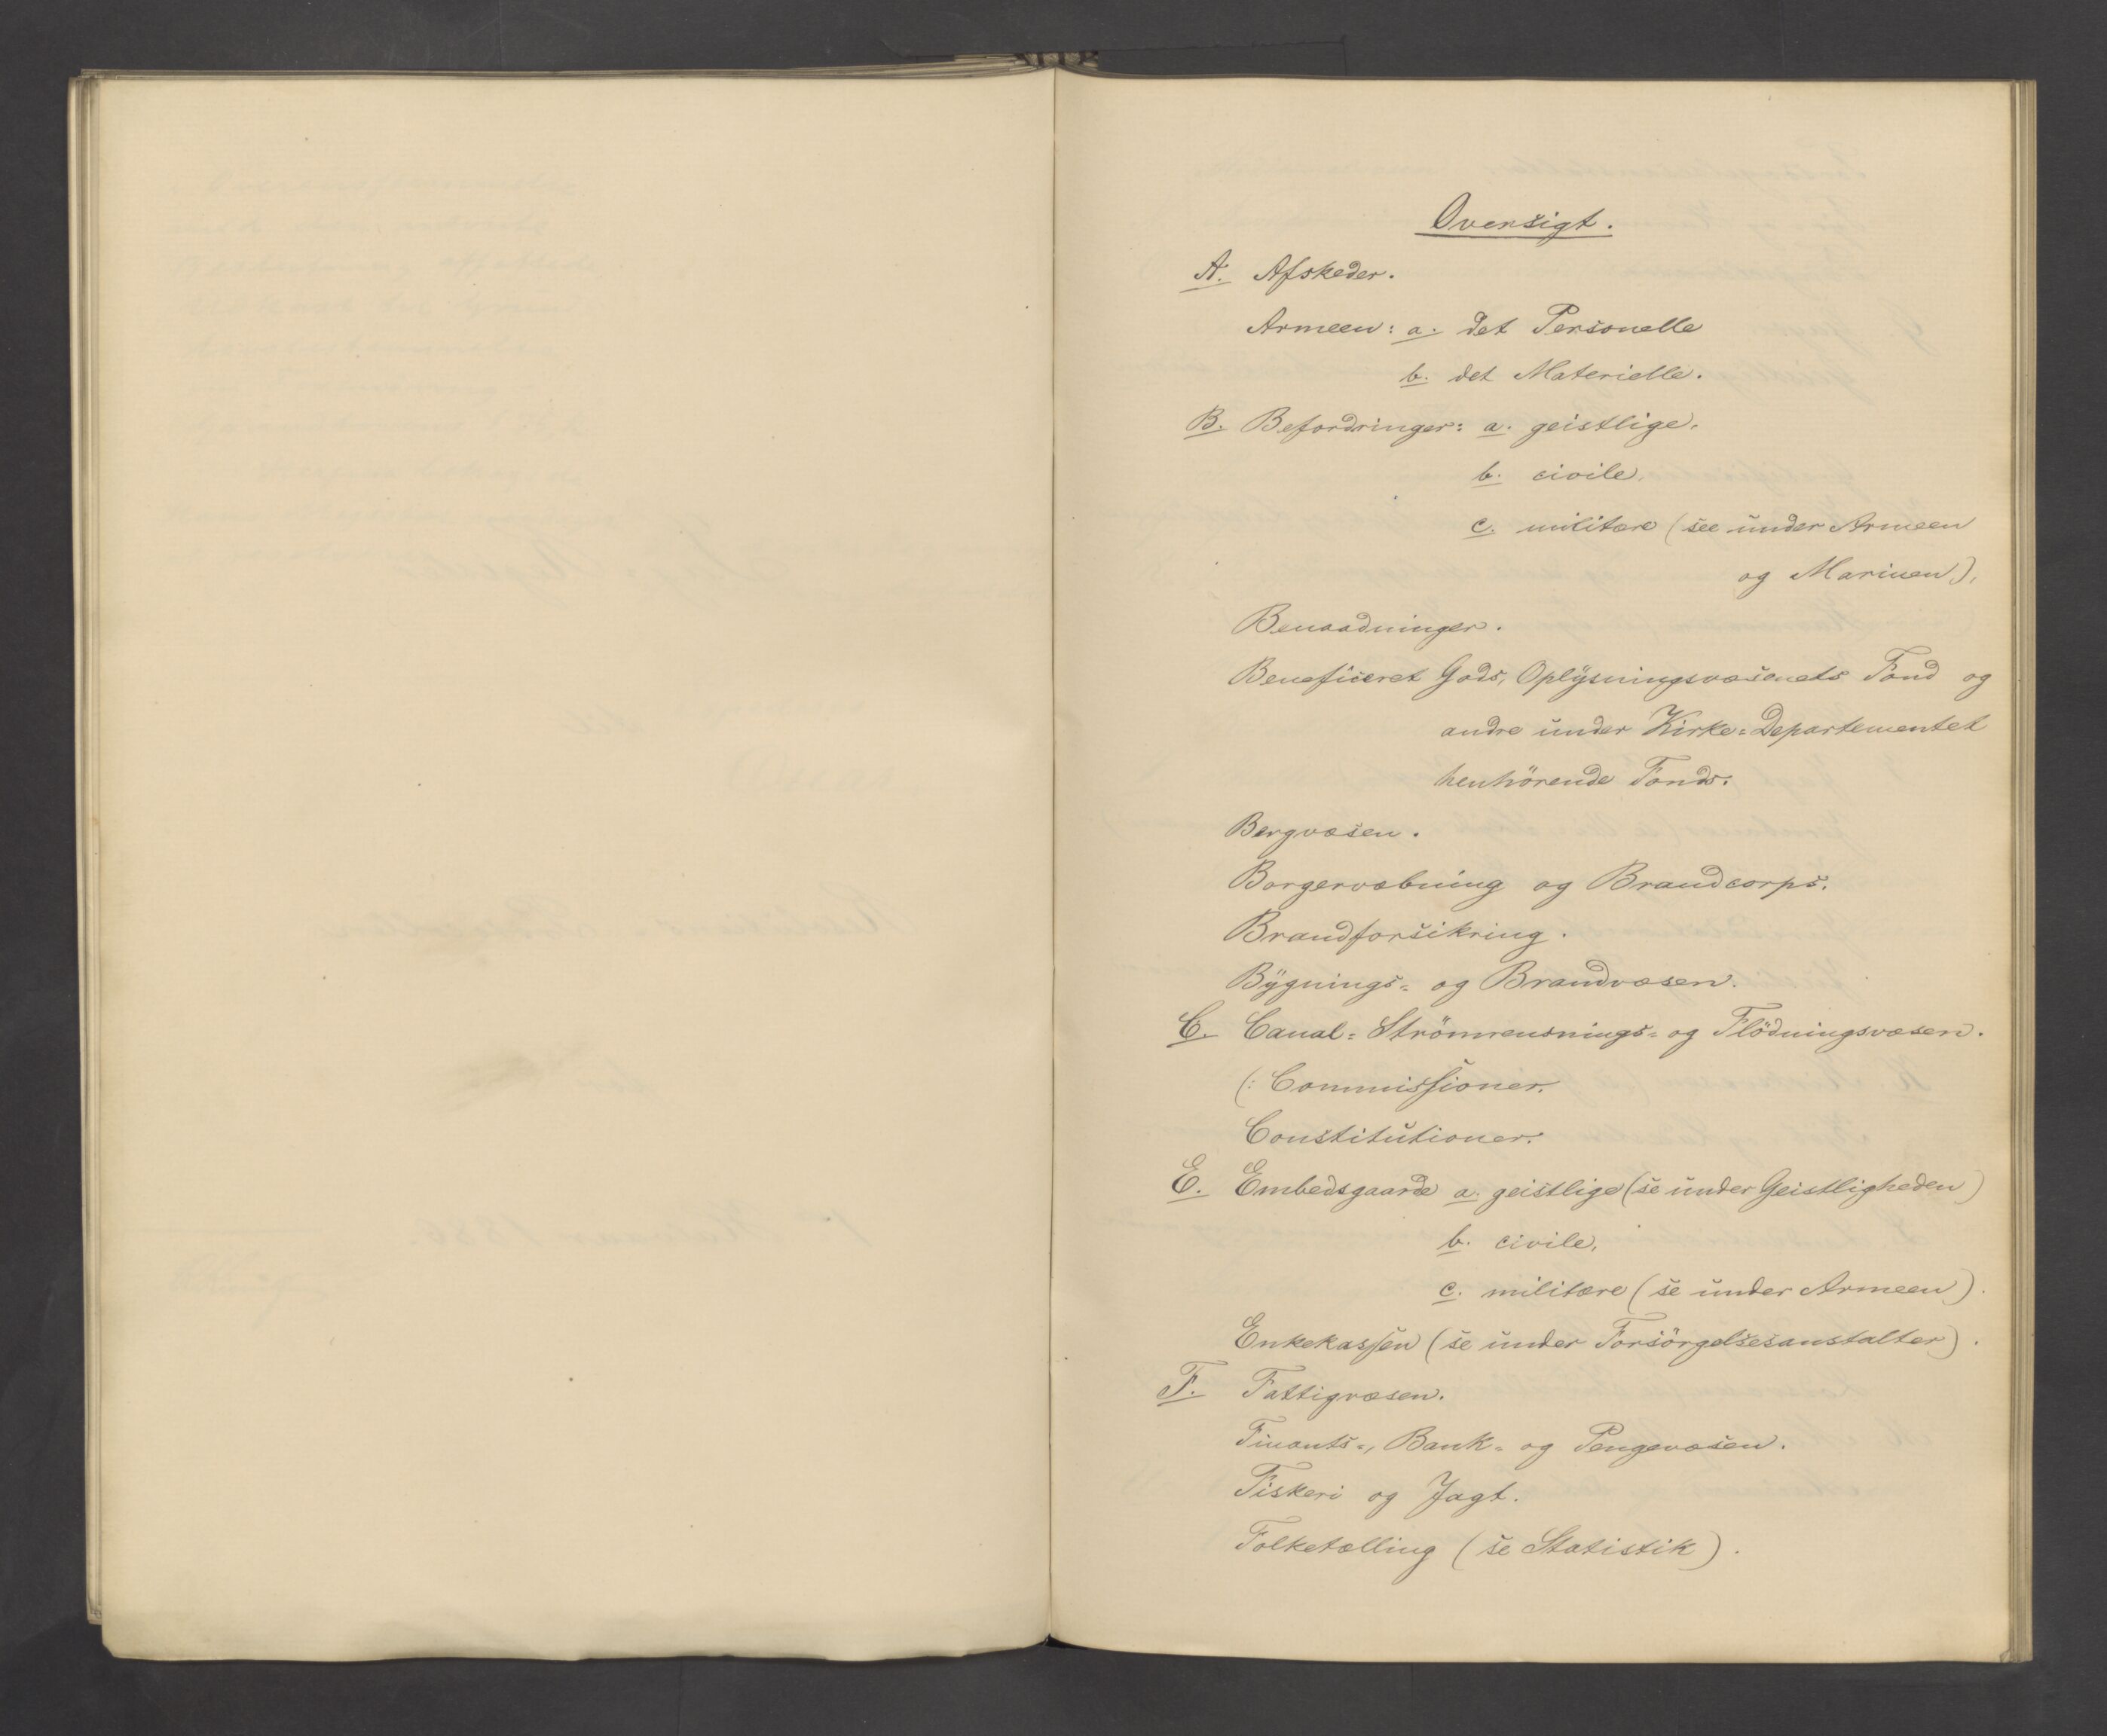 Oversigt.
A. Afskeder.
Armeen: a. det Personelle
b. det Materielle.
B. Befordringer: a. geistlige.
b. civile.
c. militære (see under Armeen
og Marinen).
Benaadninger.
Beneficeret Gods, Oplysningsvæsenets Fond og
andre under Kirke-Departementet
henhörende Fonds.
Bergvæsen.
Borgervæbning og Brandcorps.
Brandforsikring.
Bygnings- og Brandvæsen.
C. Canal- Strömrensnings- og Flödningsvæsen.
(: Commissioner.
Constitutioner.
E. Embedsgaarde a. geistlige (se under Geistligheden)
b. civile.
c. militære (se under Armeen).
Enkekassen (se under Forsörgelsesanstalter).
F. Fattigvæsen.
Finants-, Bank- og Pengevæsen.
Fiskeri og Jagt.
Folketælling (se Statistik).